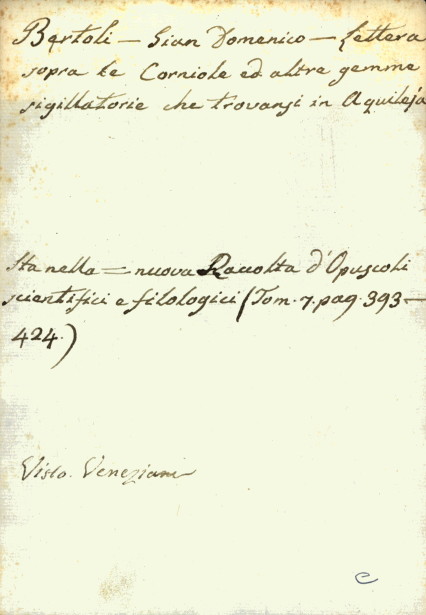 Bartoli — Gian Domenico — Lettera
sopra le Corniole ed altre gemme
sigillatorie che trovansi in Aquileja
Sta nella = nuova Raccolta d'Opuscoli
scientifici e filologici (Tom. 7. pag. 393—
424.)
Visto. Veneziani
e